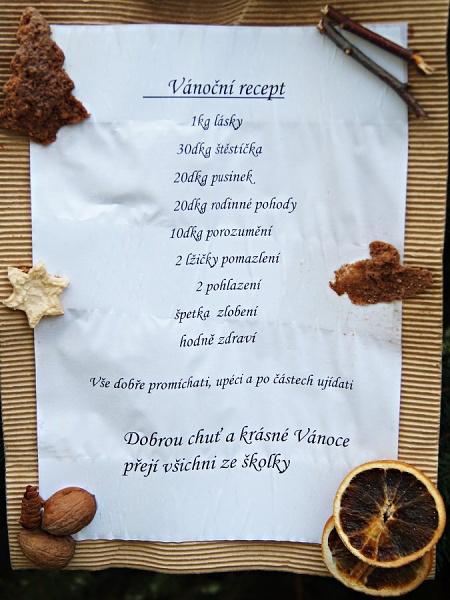 Vánoční recept
1kg lásky
30dkg štěstíčka
20dkg pusinek
20dkg rodinné pohody
10dkg porozumění
2 lžičky pomazlení
2 pohlazení
špetka zlobení
hodně zdraví
Vše dobře promíchati, upéci a po částech ujídati
Dobrou chuť a krásné Vánoce
přejí všichni ze školky